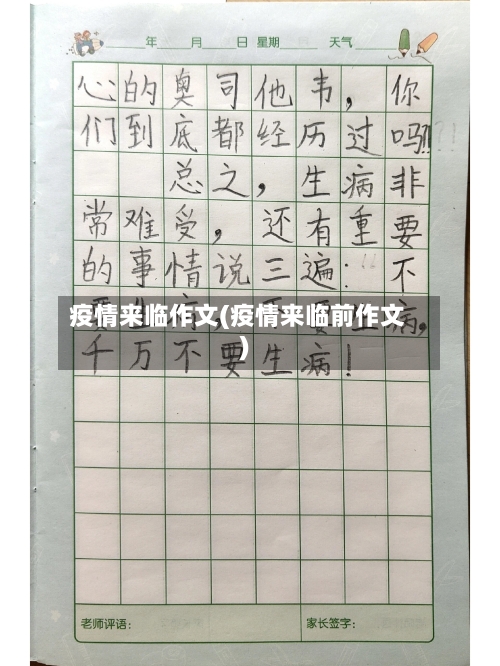 年 月 日 星期 天气
心的奥司他韦，你
们到底都经历过吗?!!
总之，生病非
常难受，还有重要
的事情说三遍：“不
疫情来临作文(疫情来临前作文
)
病，
千万不要生病！
老师评语： 家长签字：